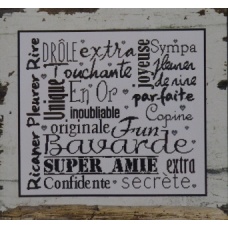 Ricaner Pleurer Rire
DRÔLE extra joyeuse Sympa
Touchante Pleurer
de rire
Unique En Or par-faite
inoubliable Copine
originale Fun
Bavarde
SUPER AMIE extra
Confidente secrète